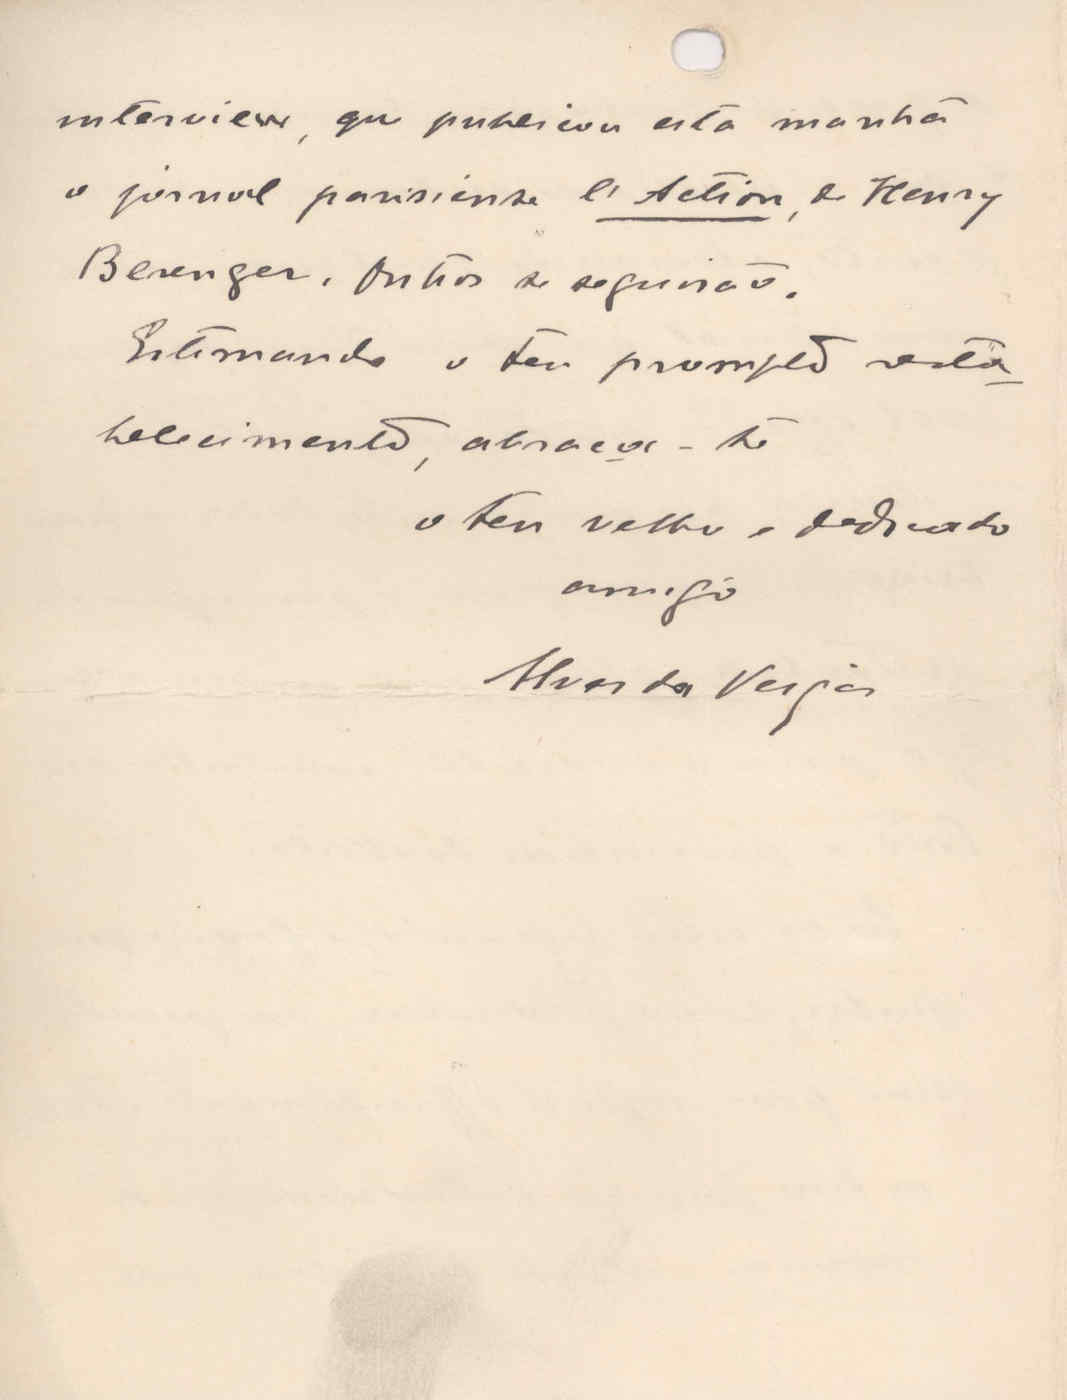 interview, que publicou esta manhã
o jornal parisiense l'Action, de Henry
Berenger. Outros se seguirão.
Estimando o teu prompto resta-
belecimento, abraça-te
o teu velho e dedicado
amigo
Alves da Veiga